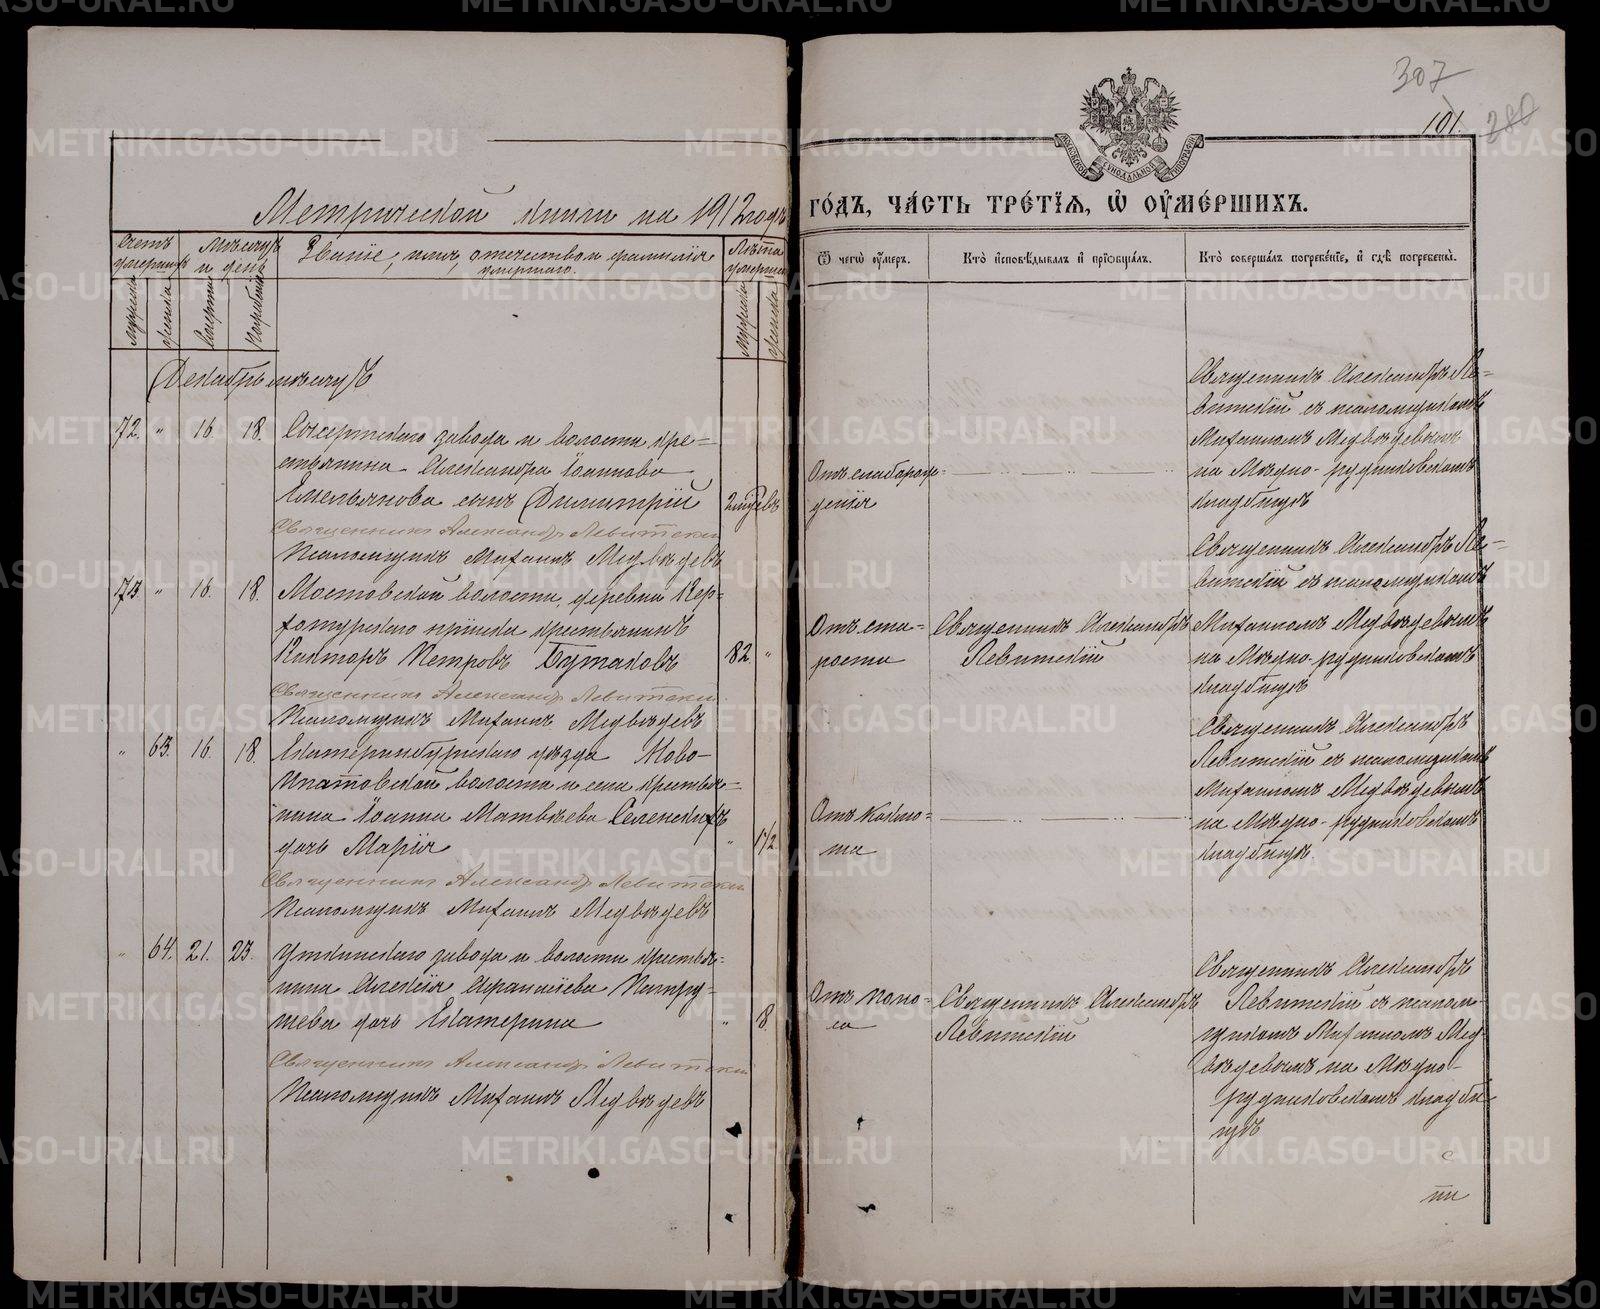 307
101.
280
МОСКОВСКОЙ СѴНОДАЛЬНОЙ ТИПОГРАФІИ
Метрической книги на 1912 годъ
го́дъ, ча́сть тре́тїѧ, ѡ҆ ᲂу҆ме́ршихъ.
Счетъ умершихъ
Мѣсяцъ и день
Званіе, имя, отчество и фамилія умершаго.
Лѣта умершаго
Мужеска
Женска
Смерти
Погребенія
Мужеска
Женска
Ѿ чегѡ̀ ᲂу҆́меръ.
Кто̀ и҆сповѣ́дывалъ и҆ прїѡбща́лъ.
Кто̀ соверша́лъ погребе́нїе, и҆ гдѣ̀ погребены̀.
Декабрь мѣсяцъ
72. „ 16. 18. Сысертскаго завода и волости кре-
стьянина Александра Іоаннова
Емельянова сынъ Димитрій
Священникъ Александръ Левитскій
Псаломщикъ Михаилъ Медвѣдевъ
Отъ слаборож-
денія
Священникъ Александръ Ле-
витскій съ псаломщикомъ
Михаиломъ Медвѣдевымъ
на Мѣдно-рудниковскомъ
кладбищѣ
73. „ 16. 18. Мостовской волости, деревни Вер-
хотурскаго пріиска крестьянинъ
Викторъ Петровъ Бутаковъ 82. „
Священникъ Александръ Левитскій
Псаломщикъ Михаилъ Медвѣдевъ
Отъ ста-
рости
Священникъ Александръ
Левитскій
Священникъ Александръ Ле-
витскій съ псаломщикомъ
Михаиломъ Медвѣдевымъ
на Мѣдно-рудниковскомъ
кладбищѣ
„ 63. 16. 18. Екатеринбургскаго уѣзда Ново-
Ипатовской волости и села крестья-
нина Іоанна Матвѣева Селенскихъ
дочь Марія „ 1 1/2
Священникъ Александръ Левитскій
Псаломщикъ Михаилъ Медвѣдевъ
Отъ коклю-
ша
Священникъ Александръ
Левитскій съ псаломщикомъ
Михаиломъ Медвѣдевымъ
на Мѣдно-рудниковскомъ
кладбищѣ.
„ 64. 21. 23. Уткинскаго завода и волости крестья-
нина Алексія Афанасіева Патру-
шева дочь Екатерина „ 8.
Священникъ Александръ Левитскій
Псаломщикъ Михаилъ Медвѣдевъ
Отъ поно-
са
Священникъ Александръ
Левитскій
Священникъ Александръ
Левитскій съ псалом-
щикомъ Михаиломъ Мед-
вѣдевымъ на Мѣдно-
рудниковскомъ кладби-
щѣ
METRIKI.GASO-URAL.RU